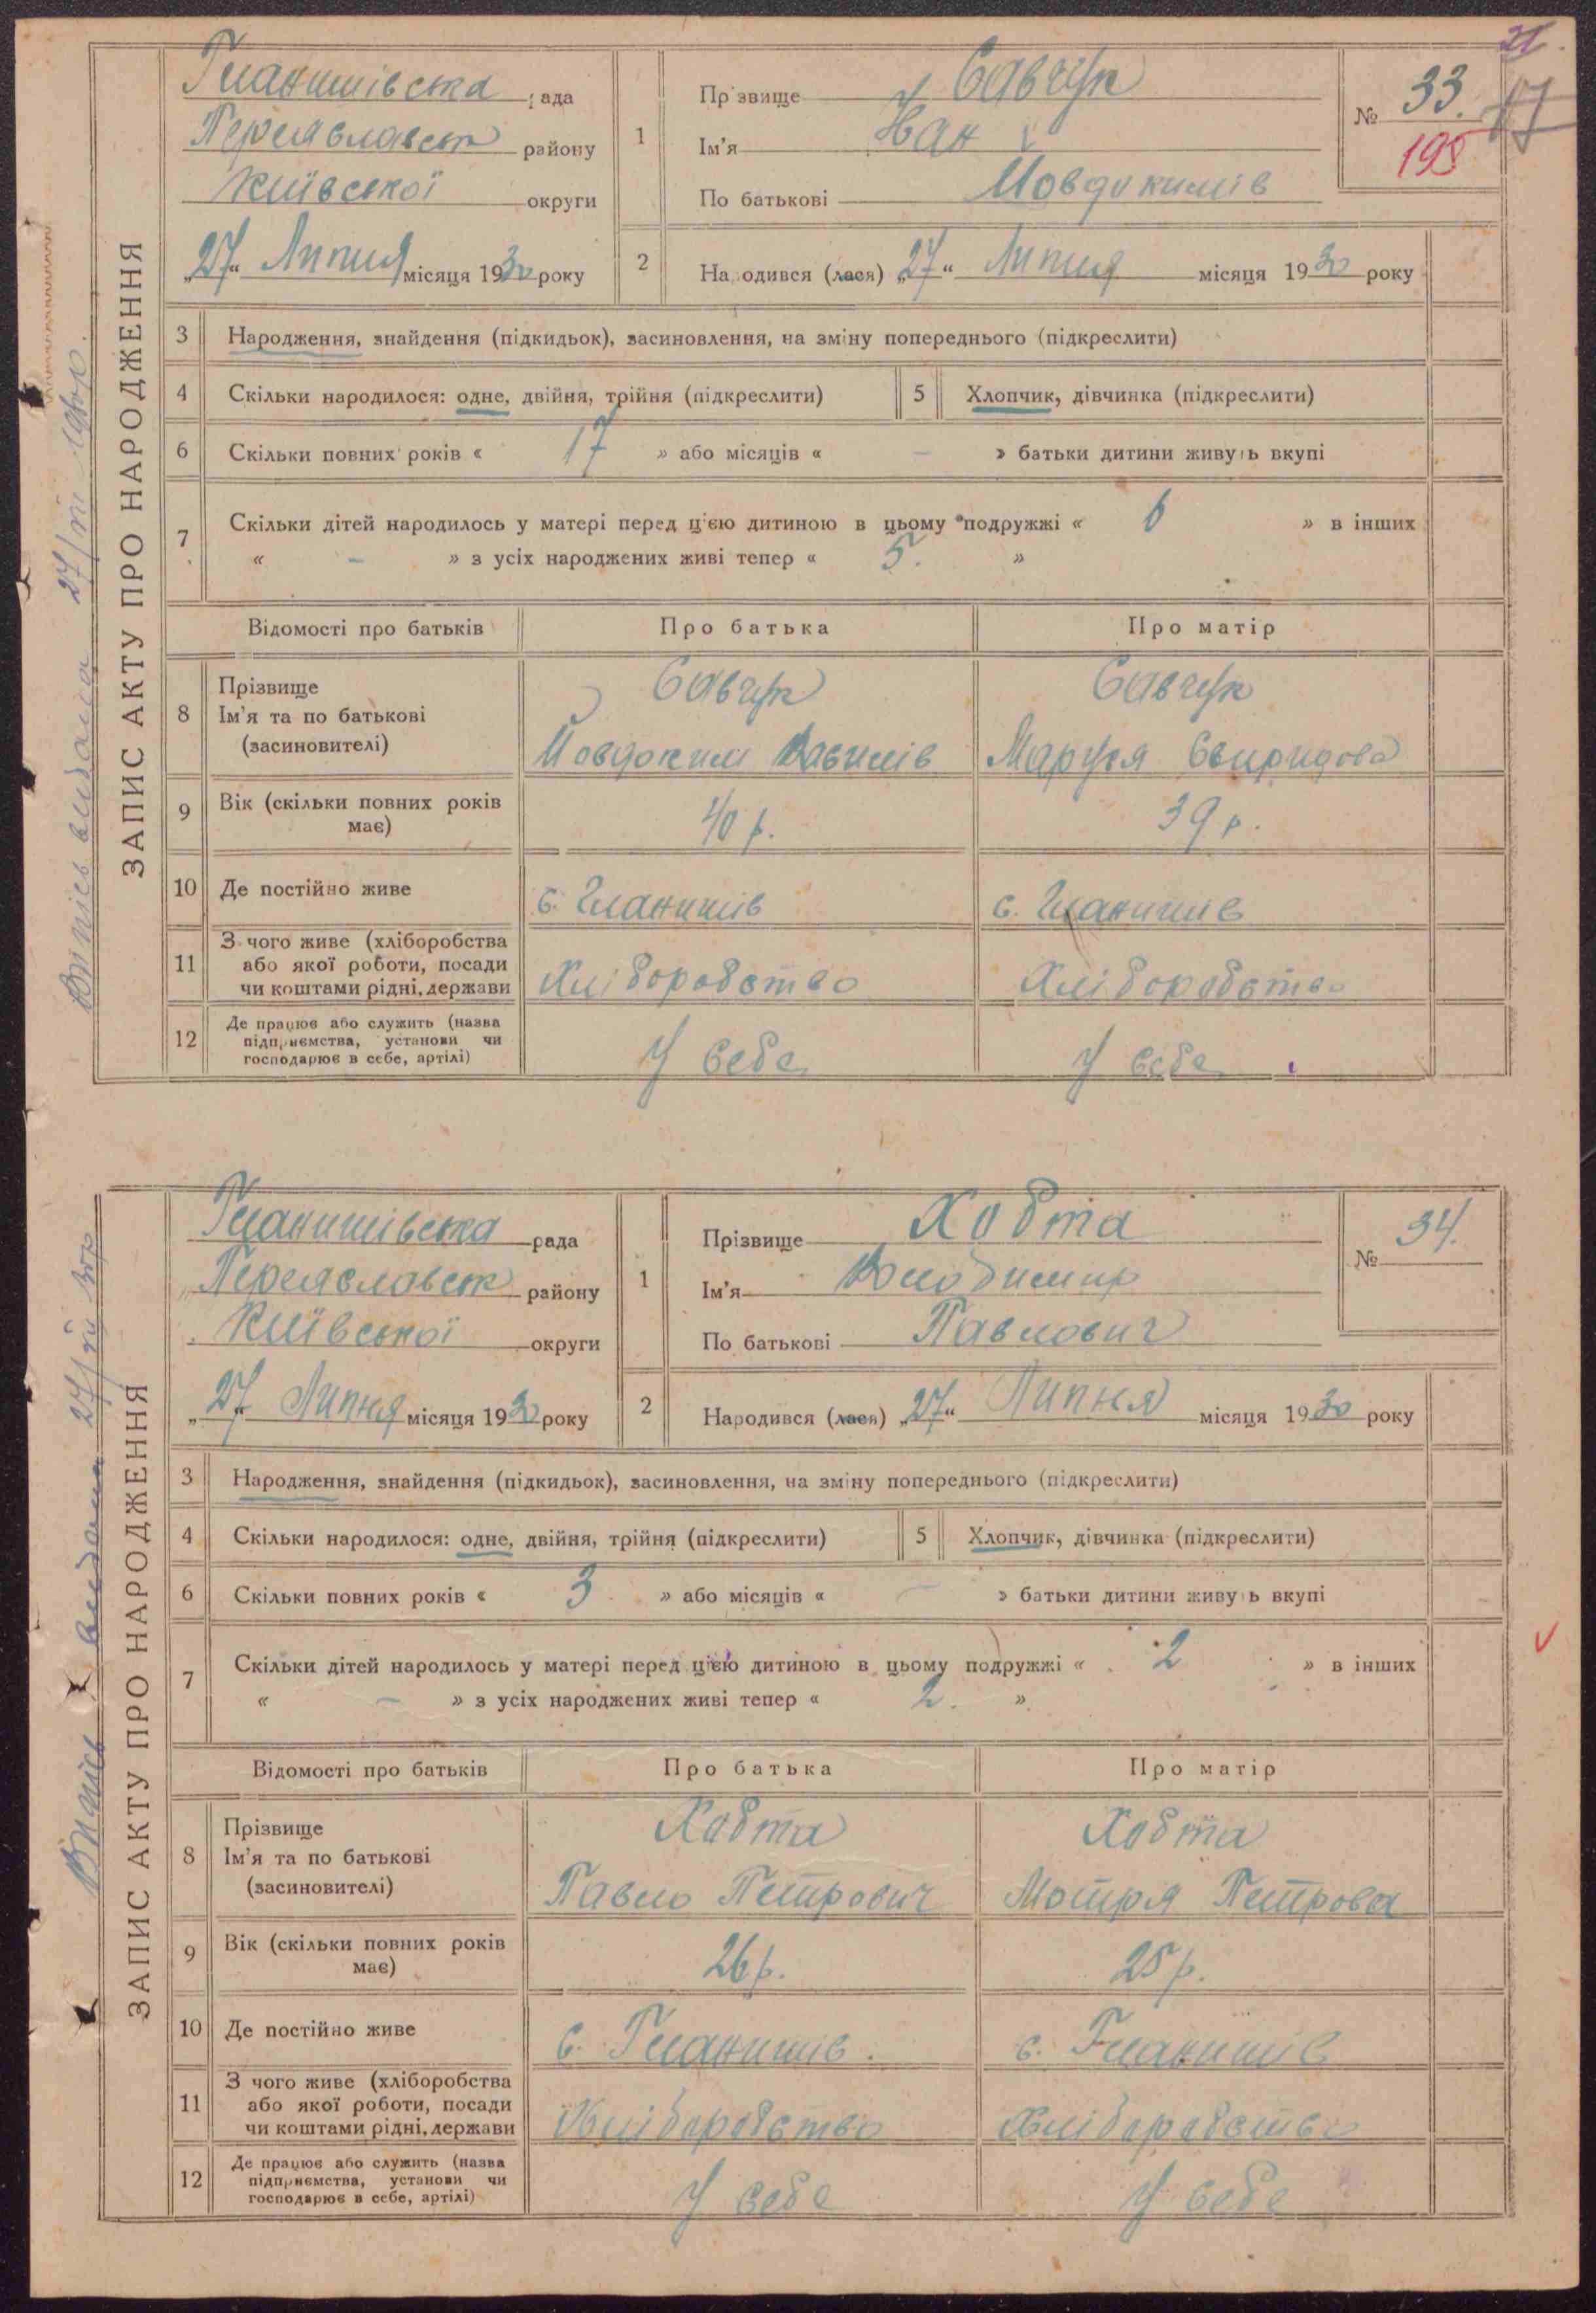 21.
17
Гланишівська рада
Переяславськ району
Київської округи
„27“ Липня місяця 1930 року
1
Прізвище Савчук
Ім'я Іван
По батькові Йовдокимів
№ 33.
195
2
Народився (лася) „27“ Липня місяця 1930 року
ЗАПИС АКТУ ПРО НАРОДЖЕННЯ
Випись видана 27/VII 1930 р.
3 Народження, знайдення (підкидьок), засиновлення, на зміну попереднього (підкреслити)
4 Скільки народилося: одне, двійня, трійня (підкреслити) 5 Хлопчик, дівчинка (підкреслити)
6 Скільки повних років « 17 » або місяців « – » батьки дитини живуть вкупі
7 Скільки дітей народилось у матері перед цією дитиною в цьому подружжі « 6 » в інших
« – » з усіх народжених живі тепер « 5. »
Відомості про батьків Про батька Про матір
8 Прізвище Савчук Савчук
Ім'я та по батькові
(засиновителі) Йовдоким Вавилів Маруся Свиридова
9 Вік (скільки повних років має) 40 р. 39 р.
10 Де постійно живе с. Гланишів с. Гланишів
11 З чого живе (хліборобства
або якої роботи, посади
чи коштами рідні, держави Хліборобство Хліборобство
12 Де працює або служить (назва
підприємства, установи чи
господарює в себе, артілі) У себе У себе
Гланишівська рада
Переяславськ району
Київської округи
„27“ Липня місяця 1930 року
1
Прізвище Хобта
Ім'я Володимир
По батькові Павлович
№ 34.
2
Народився (лася) „27“ Липня місяця 1930 року
ЗАПИС АКТУ ПРО НАРОДЖЕННЯ
Випись видана 27/VII 30 р
3 Народження, знайдення (підкидьок), засиновлення, на зміну попереднього (підкреслити)
4 Скільки народилося: одне, двійня, трійня (підкреслити) 5 Хлопчик, дівчинка (підкреслити)
6 Скільки повних років « 3 » або місяців « – » батьки дитини живуть вкупі
7 Скільки дітей народилось у матері перед цією дитиною в цьому подружжі « 2 » в інших
« – » з усіх народжених живі тепер « 2. »
Відомості про батьків Про батька Про матір
8 Прізвище Хобта Хобта
Ім'я та по батькові
(засиновителі) Павло Петрович Мотря Петрова
9 Вік (скільки повних років має) 26 р. 25 р.
10 Де постійно живе с. Гланишів. с. Гланишів
11 З чого живе (хліборобства
або якої роботи, посади
чи коштами рідні, держави Хліборобство Хліборобство
12 Де працює або служить (назва
підприємства, установи чи
господарює в себе, артілі) У себе У себе